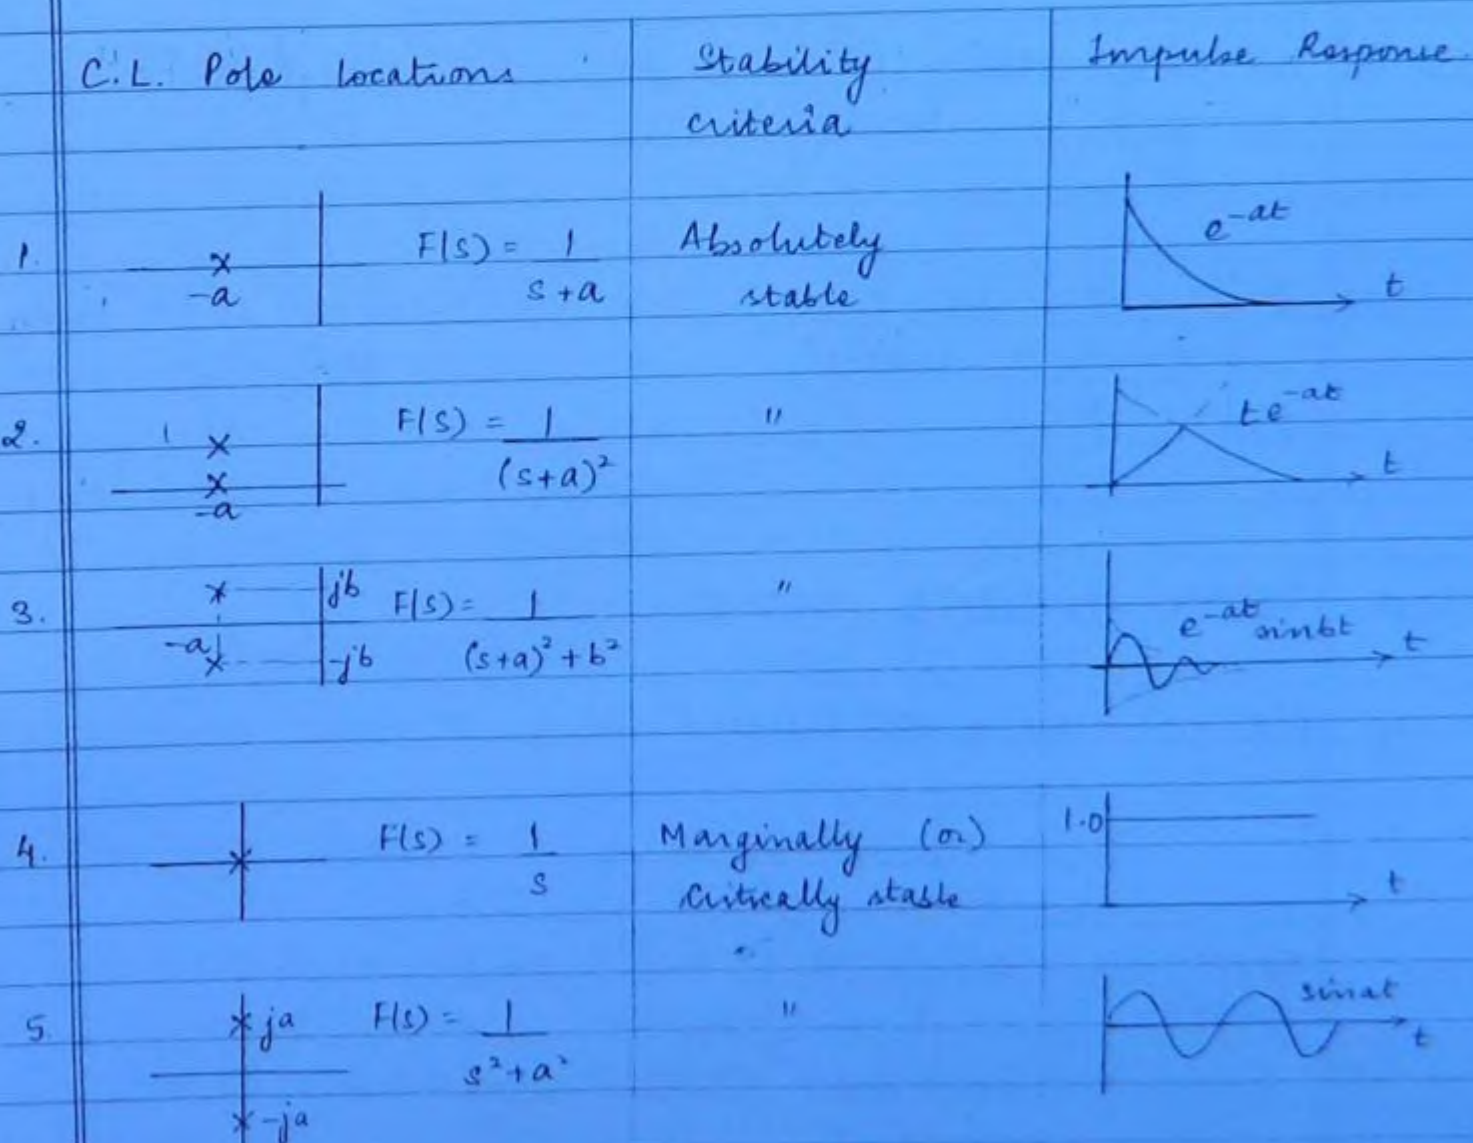 C.L. Pole locations Stability criteria Impulse Response
1. -a F(s) = 1 / s+a Absolutely stable e^-at t
2. -a F(s) = 1 / (s+a)² " te^-at t
3. -a jb -jb F(s) = 1 / (s+a)²+b² " e^-at sinbt t
4. F(s) = 1 / s Marginally (or) critically stable 1.0 t
5. ja -ja F(s) = 1 / s²+a² " sinat t